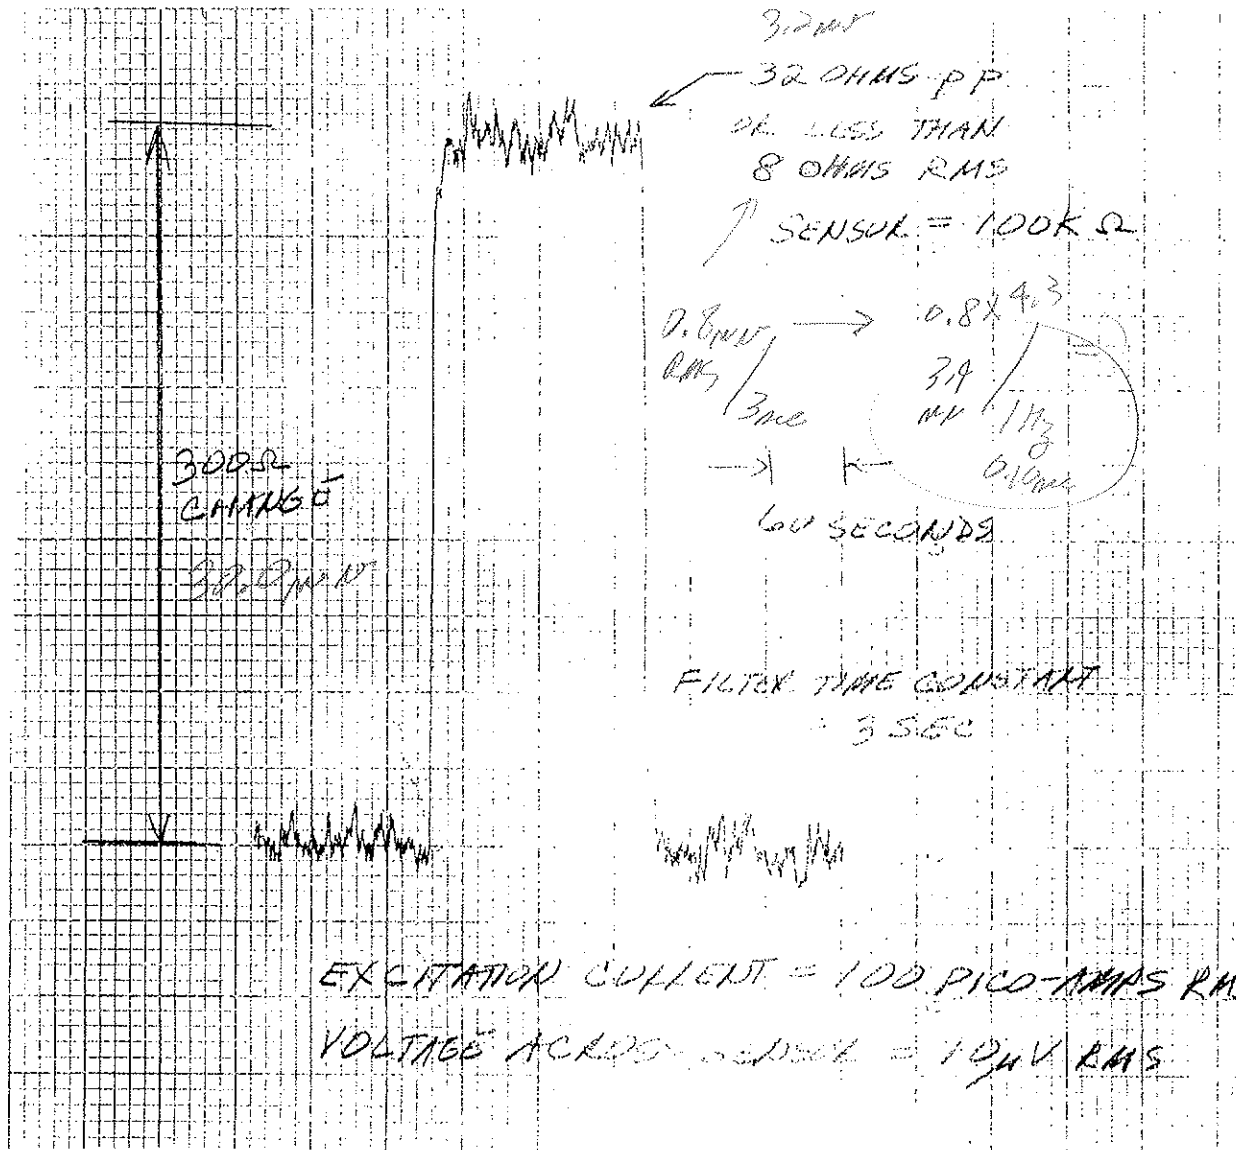 32 OHMS PP
OR LESS THAN
8 OHMS RMS
SENSOR = 100K Ω
0.8
RMS
0.8 X 4.3
1 Hz
300Ω
CHANGE
60 SECONDS
FILTER TIME CONSTANT
3 SEC
EXCITATION CURRENT = 100 PICO-AMPS RMS
VOLTAGE ACROSS SENSOR = 10µV RMS